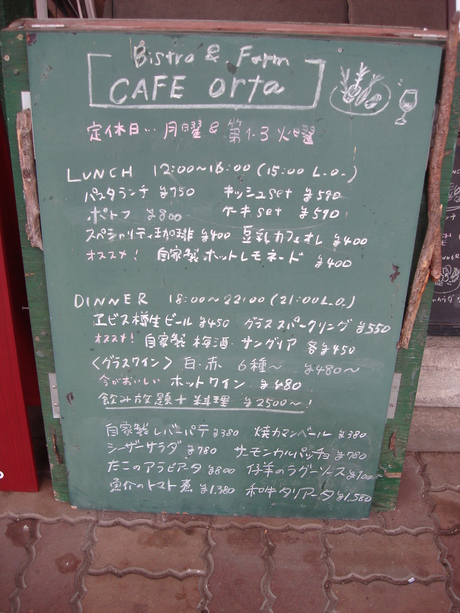 Bistro & Farm
CAFE orta
定休日… 月曜日 & 第1.3 火曜
LUNCH 12:00〜16:00 (15:00 L.O.)
パスタランチ ¥750 キッシュset ¥590
ポトフ ¥800 ケーキset ¥590
スペシャリティ珈琲 ¥400 豆乳カフェオレ ¥400
オススメ! 自家製 ホットレモネード ¥400
DINNER 18:00〜22:00 (21:00 L.O.)
ヱビス樽生ビール ¥450 グラススパークリング ¥550
オススメ! 自家製 梅酒・サングリア 各¥450
〈グラスワイン〉白・赤 6種〜 ¥480〜
今がおいしい ホットワイン ¥480
飲み放題+料理 ¥2500〜!
自家製レバーパテ ¥380 焼カマンベール ¥380
シーザーサラダ ¥780 サーモンカルパッチョ ¥780
たこのアラビアータ ¥800 仔羊のラグーソース
魚介のトマト煮 ¥1,380 和牛タリアータ ¥1,580